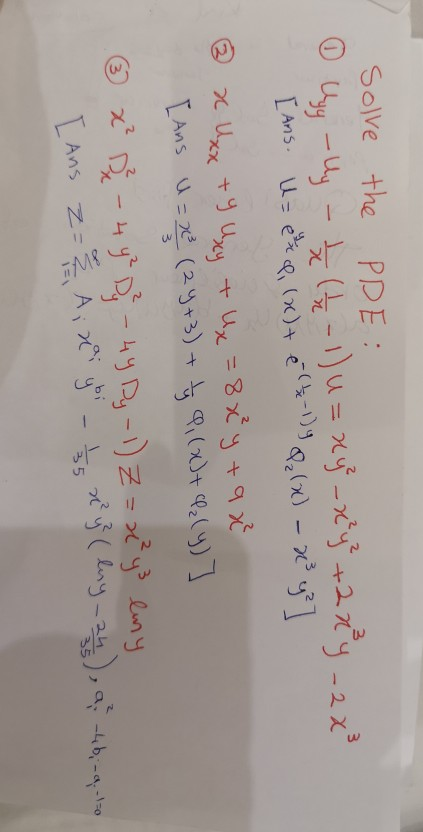 Solve the PDE:
① u_yy - u_y - 1/x (1/x - 1) u = xy² - x²y² + 2x³y - 2x³
[Ans. u = e^(y/x) φ₁(x) + e^(-(1/x - 1)y) φ₂(x) - x³y²]
② x u_xx + y u_xy + u_x = 8x²y + 9x²
[Ans u = x³/3 (2y+3) + 1/y φ₁(x) + φ₂(y)]
③ x² D_x² - 4y² D_y² - 4y D_y - 1) Z = x² y³ ln y
[Ans Z = Σ_(i=1)^∞ A_i x^(a_i) y^(b_i) - 1/35 x² y² (ln y - 24/35), a_i² - 4b_i - a_i - 1 = 0